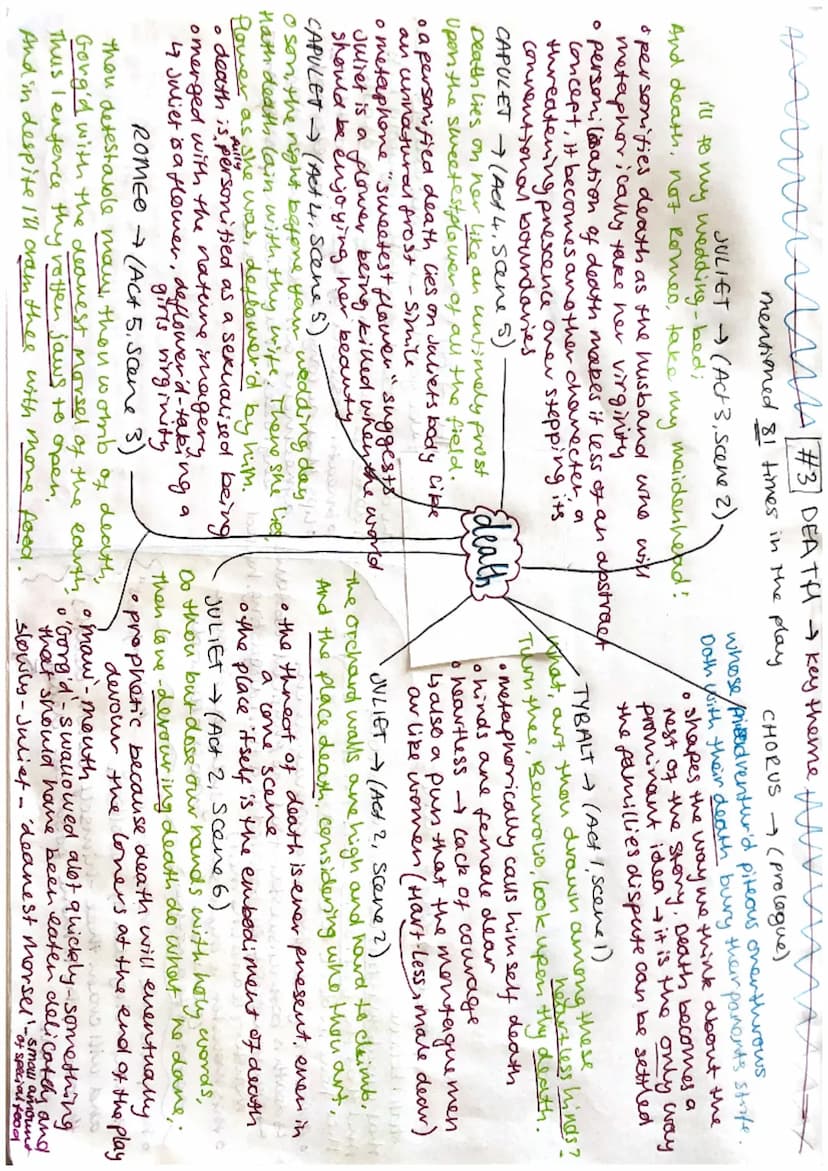 #3 DEATH → key theme
mentioned 81 times in the play
JULIET → (Act 3, scene 2)
I'll to my wedding-bed;
And death, not Romeo, take my maidenhead!
• personifies death as the husband who will
metaphorically take her virginity
• personification of death makes it less of an abstract
concept, it becomes another character, a
threatening prescence over stepping its
conventional boundaries
CAPULET → (Act 4, Scene 5)
Death lies on her like an untimely frost
Upon the sweetest flower of all the field.
• a personified death lies on Juliets body like
an unnatural frost - simile
• metaphone "sweetest flower" suggests
Juliet is a flower being killed when the world
should be enjoying her beauty
CAPULET → (Act 4, scene 5)
O son, the night before thy wedding day
Hath death lain with thy wife. There she lies,
flower as she was, deflowered by him.
• death is fully personified as a sexualised being
• merged with the nature imagery
↳ Juliet is a flower, deflower'd - taking a
girls virginity
ROMEO → (Act 5, scene 3)
thou detestable maw, thou womb of death,
Gorg'd with the dearest morsel of the earth,
Thus I enforce thy rotten jaws to open,
And in despite I'll cram thee with more food.
CHORUS → (prologue)
whose misadventur'd piteous overthrows
Doth with their death bury their parents strife.
• shapes the way we think about the
rest of the story. Death becomes a
prominent idea → it is the only way
the famillies dispute can be settled
death
TYBALT → (Act 1, scene 1)
What, art thou drawn among these heartless hinds?
Turn thee, Benvolio, look upon thy death.
• metaphorically calls himself death
• hinds are female dear
• heartless → lack of courage
↳ also a pun that the montague men
are like women (Hart-less, male dear)
JULIET → (Act 2, scene 2)
the orchard walls are high and hard to climb,
And the place death, considering who thou art,
• the threat of death is ever present, even in
a love scene
• the place itself is the embodiment of death
JULIET → (Act 2, scene 6)
Do thou but close our hands with holy words,
Then love-devouring death do what he dare;
• prophetic because death will eventually
devour the lovers at the end of the play
• maw - mouth
• 'Gorg'd' - swallowed alot quickly - something
that should have been eaten delicately and
slowly - Juliet - 'dearest morsel' - small amount
of special food